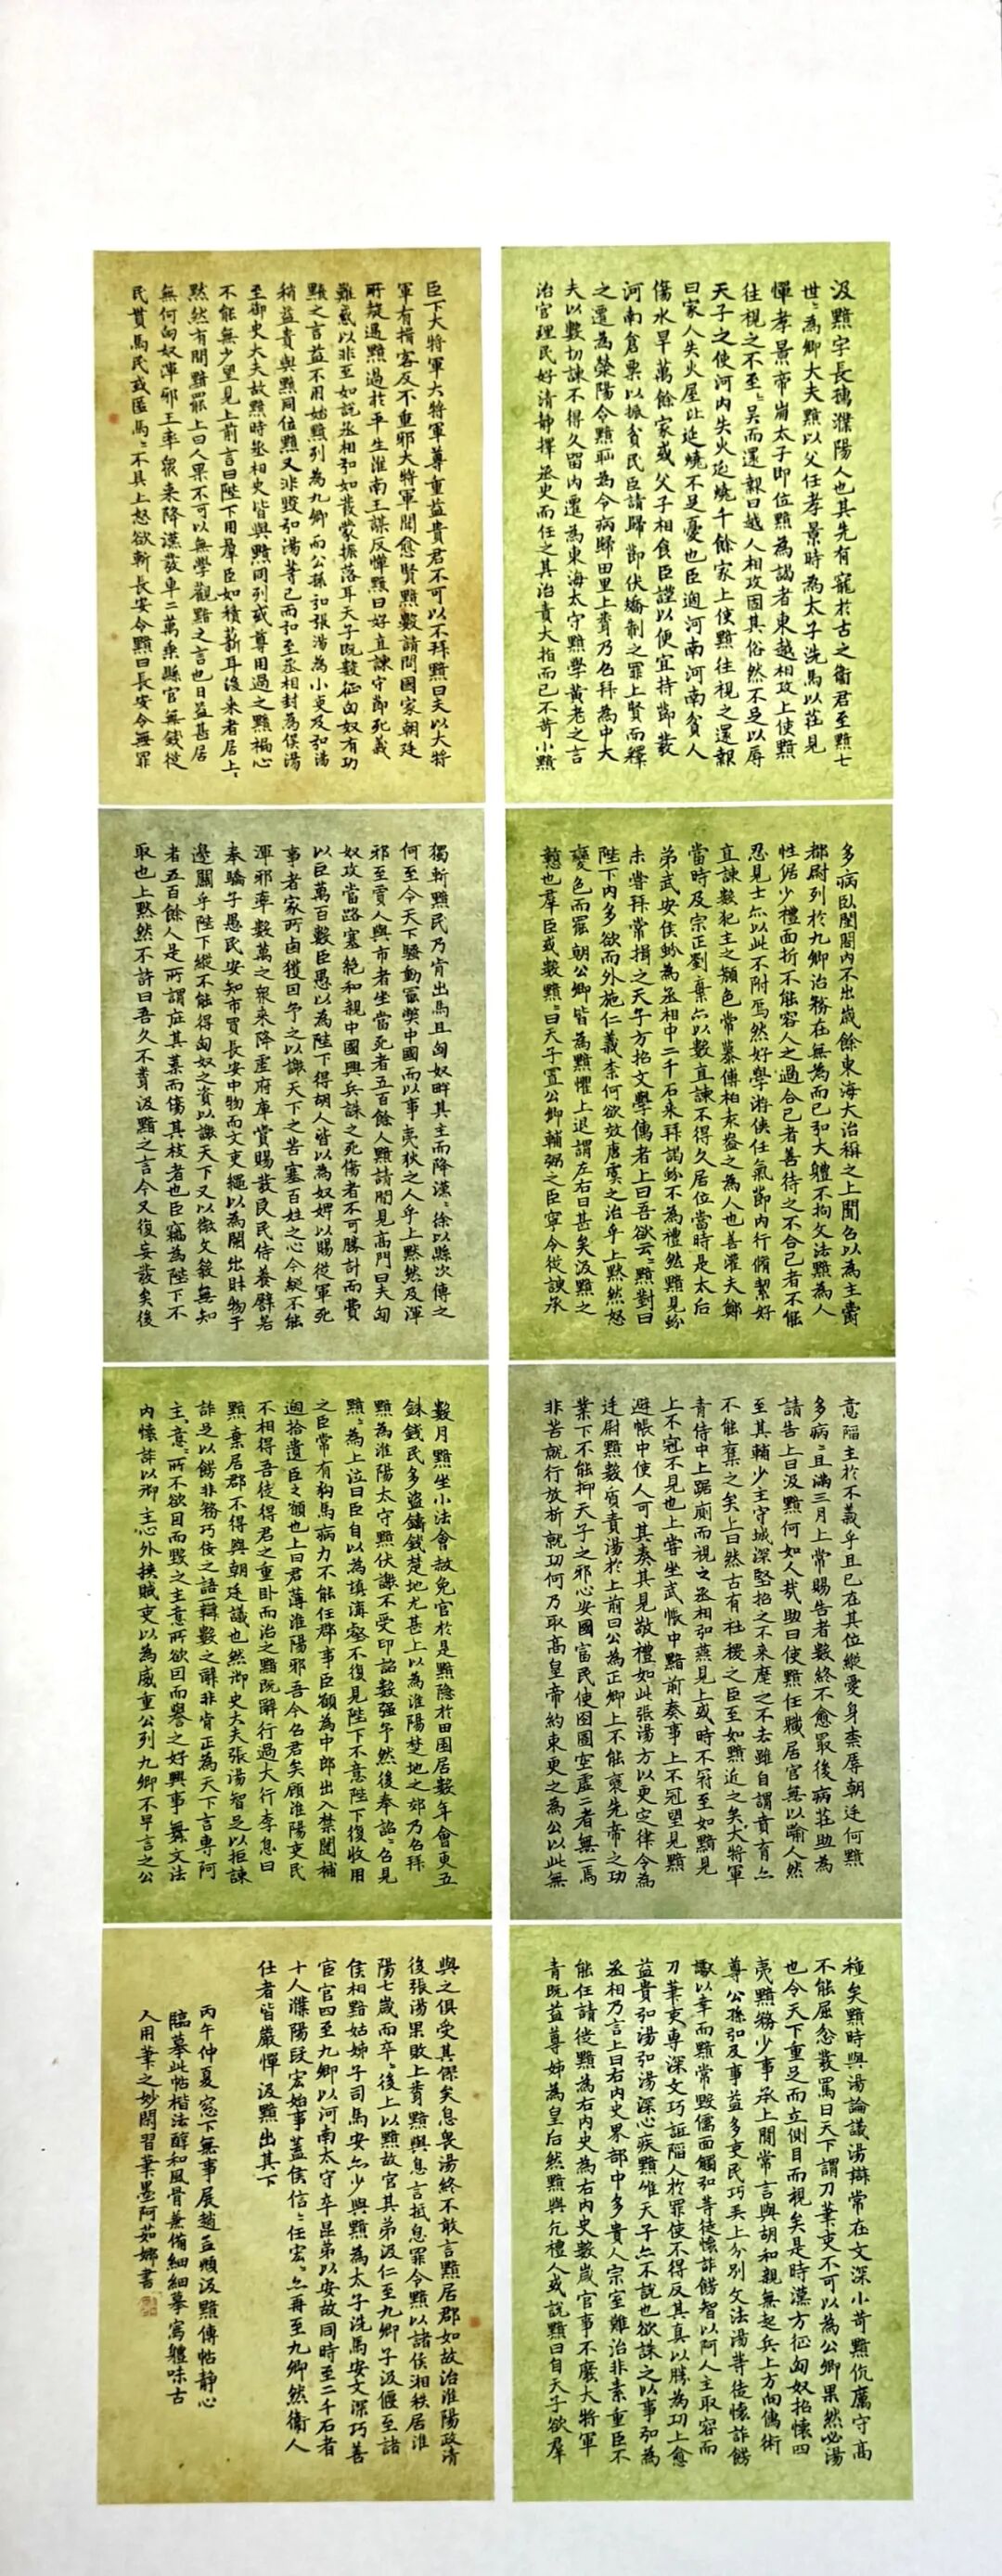 汲黯字長孺濮陽人也其先有寵於古之衛君至黯七
世〻為卿大夫黯以父任孝景時為太子洗馬以莊見
憚孝景帝崩太子即位黯為謁者東越相攻上使黯
往視之不至〻吳而還報曰越人相攻固其俗然不足以辱
天子之使河內失火延燒千餘家上使黯往視之還報
曰家人失火屋比延燒不足憂也臣過河南河南貧人
傷水旱萬餘家或父子相食臣謹以便宜持節發
河南倉粟以振貧民臣請歸節伏矯制之罪上賢而釋
之遷為滎陽令黯恥為令病歸田里上聞乃召拜為中大
夫以數切諫不得久留內遷為東海太守黯學黃老之言
治官理民好清靜擇丞史而任之其治責大指而已不苛小黯
多病臥閨閤內不出歲餘東海大治稱之上聞召以為主爵
都尉列於九卿治務在無為而已弘大體不拘文法黯為人
性倨少禮面折不能容人之過合己者善待之不合己者不能
忍見士亦以此不附焉然好學游俠任氣節內行脩絜好
直諫數犯主之顏色常慕傅柏袁盎之為人也善灌夫鄭
當時及宗正劉棄亦以數直諫不得久居位當時是太后
弟武安侯蚡為丞相中二千石來拜謁蚡不為禮然黯見蚡
未嘗拜常揖之天子方招文學儒者上曰吾欲云〻黯對曰
陛下內多欲而外施仁義柰何欲效唐虞之治乎上默然怒
變色而罷朝公卿皆為黯懼上退謂左右曰甚矣汲黯之
戇也羣臣或數黯〻曰天子置公卿輔弼之臣寧令從諛承
意陷主於不義乎且已在其位縱愛身柰辱朝廷何黯
多病〻且滿三月上常賜告者數終不愈最後病莊助為
請告上曰汲黯何如人哉助曰使黯任職居官無以踰人然
至其輔少主守城深堅招之不來麾之不去雖自謂賁育亦
不能奪之矣上曰然古有社稷之臣至如黯近之矣大將軍
青侍中上踞廁而視之丞相弘燕見上或時不冠至如黯見
上不冠不見也上嘗坐武帳中黯前奏事上不冠望見黯
避帳中使人可其奏其見敬禮如此張湯方以更定律令為
廷尉黯數質責湯於上前曰公為正卿上不能襃先帝之功
業下不能抑天子之邪心安國富民使囹圄空虛二者無一焉
非苦就行放析就功何乃取高皇帝約束更之為公以此無
種矣黯時與湯論議湯辯常在文深小苛黯伉厲守高
不能屈忿發罵曰天下謂刀筆吏不可以為公卿果然必湯
也令天下重足而立側目而視矣是時漢方征匈奴招懷四
夷黯務少事承上間常言與胡和親無起兵上方向儒術
尊公孫弘及事益多吏民巧弄上分別文法湯等
讞以幸而黯常毀儒面觸弘等徒懷詐飾智以阿人主取容而
刀筆吏專深文巧詆陷人於罪使不得反其真以勝為功上愈
益貴弘湯弘湯深心疾黯唯天子亦不說也欲誅之以事弘為
丞相乃言上曰右內史界部中多貴人宗室難治非素重臣不
能任請徙黯為右內史為右內史數歲官事不廢大將軍
青既益尊姊為皇后然黯與亢禮人或說黯曰自天子欲羣
臣下大將軍大將軍尊重益貴君不可以不拜黯曰夫以大將
軍有揖客反不重邪大將軍聞愈賢黯數請問國家朝廷
所疑遇黯過於平生淮南王謀反憚黯曰好直諫守節死義
難惑以非至如說丞相弘如發蒙振落耳天子既數征匈奴有功
黯之言益不用始黯列為九卿而公孫弘張湯為小吏及弘湯
稍益貴與黯同位黯又非毀弘湯等已而弘至丞相封為侯湯
至御史大夫故黯時丞相史皆與黯同列或尊用過之黯褊心
不能無少望見上前言曰陛下用羣臣如積薪耳後來者居上〻
默然有間黯罷上曰人果不可以無學觀黯之言也日益甚居
無何匈奴渾邪王率眾來降漢發車二萬乘縣官無錢從
民貰馬民或匿馬〻不具上怒欲斬長安令黯曰長安令無罪
獨斬黯民乃肯出馬且匈奴畔其主而降漢〻徐以縣次傳之
何至令天下騷動罷獘中國而以事夷狄之人乎上默然及渾
邪至賈人與市者坐當死者五百餘人黯請間見高門曰夫匈
奴攻當路塞絕和親中國興兵誅之死傷者不可勝計而費
以巨萬百數臣愚以為陛下得胡人皆以為奴婢以賜從軍死
事者家所鹵獲因予之以謝天下之苦塞百姓之心今縱不能
渾邪率數萬之眾來降虛府庫賞賜發良民侍養譬若
奉驕子愚民安知市買長安中物而文吏繩以為闌出財物于
邊關乎陛下縱不能得匈奴之資以謝天下又以微文殺無知
者五百餘人是所謂庇其葉而傷其枝者也臣竊為陛下不
取也上默然不許曰吾久不聞汲黯之言今又復妄發矣後
數月黯坐小法會赦免官於是黯隱於田園居數年會更五
銖錢民多盜鑄錢楚地尤甚上以為淮陽楚地之郊乃召拜
黯為淮陽太守黯伏謝不受印詔數强予然後奉詔〻召見
黯〻為上泣曰臣自以為填溝壑不復見陛下不意陛下復收用
之臣常有狗馬病力不能任郡事臣願為中郎出入禁闥補
過拾遺臣之願也上曰君薄淮陽邪吾今召君矣顧淮陽吏民
不相得吾徒得君之重臥而治之黯既辭行過大行李息曰
黯棄居郡不得與朝廷議也然御史大夫張湯智足以拒諫
詐足以飾非務巧佞之語辯數之辭非肯正為天下言專阿
主〻意〻所不欲因而毀之主意所欲因而譽之好興事舞文法
內懷詐以御主心外挾賊吏以為威重公列九卿不早言之公
與之俱受其僇矣息畏湯終不敢言黯居郡如故治淮陽政清
後張湯果敗上聞黯與息言抵息罪令黯以諸侯相秩居淮
陽七歲而卒〻後上以黯故官其弟汲仁至九卿子汲偃至諸
侯相黯姑姊子司馬安亦少與黯為太子洗馬安文深巧善
宦官四至九卿以河南太守卒昆弟以安故同時至二千石者
十人濮陽段宏始事蓋侯信〻任宏〻亦再至九卿然衛人
仕者皆嚴憚汲黯出其下
丙午仲夏窓下無事展趙孟頫汲黯傳帖靜心
臨摹此帖楷法醇和風骨兼備細細摹寫體味古
人用筆之妙閑習筆墨阿茹娜書